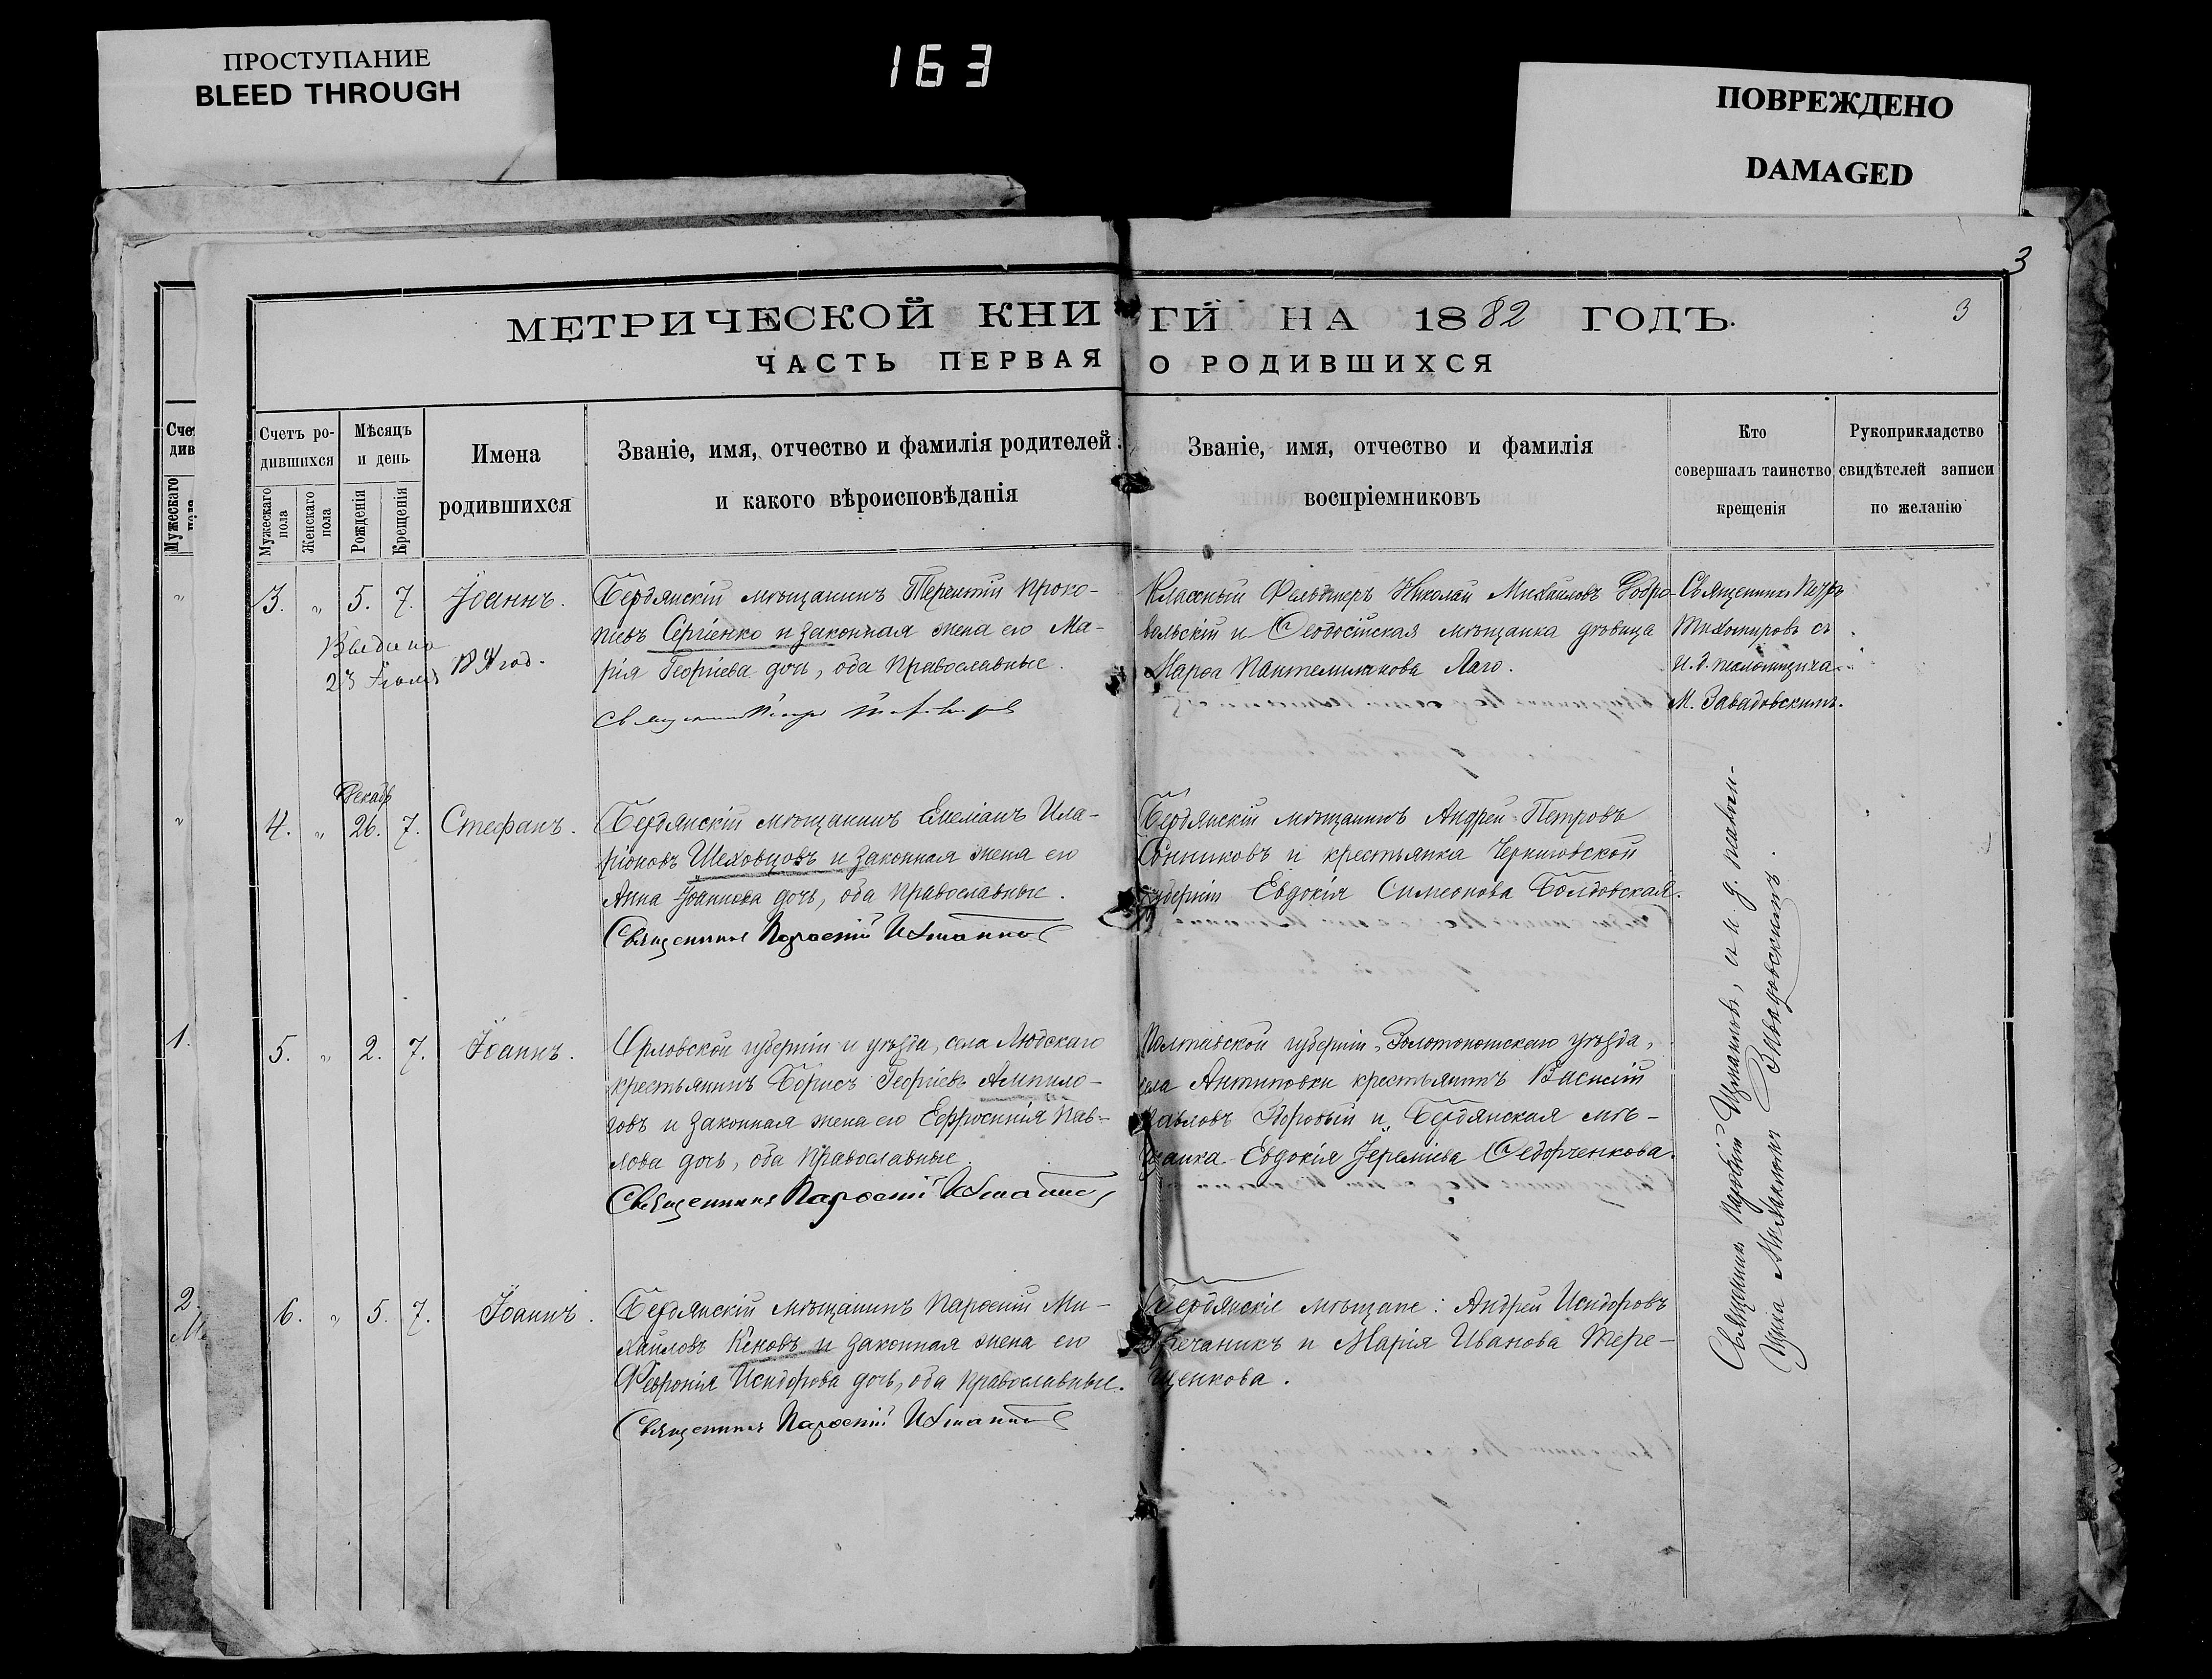 ПРОСТУПАНИЕ
BLEED THROUGH
163
ПОВРЕЖДЕНО
DAMAGED
3
МЕТРИЧЕСКОЙ КНИГИ НА 1882 ГОДЪ.
3
ЧАСТЬ ПЕРВАЯ О РОДИВШИХСЯ
Счетъ ро-
дившихся
Мужескаго
пола
Женскаго
пола
Мѣсяцъ
и день
Рожденія
Крещенія
Имена
родившихся
Званіе, имя, отчество и фамилія родителей
и какого вѣроисповѣданія
Званіе, имя, отчество и фамилія
воспріемниковъ
Кто
совершалъ таинство
крещенія
Рукоприкладство
свидѣтелей записи
по желанію
3. „ 5. 7. Іоаннъ.
23
Бердянскій мѣщанинъ Терентій Проко-
піевъ Сергіенко и законная жена его Ма-
рія Георгіева дочь, оба Православные.
Классный Фельдшеръ Николай Михаиловъ Добро-
вольскій и Ѳеодосійская мѣщанка дѣвица
Марѳа Пантелимонова
Священникъ Петръ
Тихомировъ съ
и. д. псаломщика
М. Завадовскимъ.
Декабр
4. „ 26. 7. Стефанъ.
Бердянскій мѣщанинъ Емеліанъ Ила-
ріоновъ Шеховцовъ и законная жена его
Анна Іоаннова дочь, оба Православные.
Священникъ Парѳеній
Бердянскій мѣщанинъ Андрей Петровъ
и крестьянка Черниговской
губерніи Евдокія Симеонова Болдовская.
5. „ 2. 7. Іоаннъ.
Орловской губерніи и уѣзда, села Людскаго
крестьянинъ Борисъ Георгіевъ Алпило-
говъ и законная жена его Ефросинія Пав-
лова дочь, оба Православные.
Священникъ Парѳеній
Полтавской губерніи, Золотоношскаго уѣзда,
села Антиповки крестьянинъ Василій
Павловъ и Бердянская мѣ-
щанка Евдокія Іереміева Ѳедорченкова.
6. „ 5. 7. Іоаннъ.
Бердянскій мѣщанинъ Парѳеній Ми-
хаиловъ Кеновъ и законная жена его
Ѳевронія Исидорова дочь, оба Православные.
Священникъ Парѳеній
Бердянскіе мѣщане: Андрей Исидоровъ
Гречаникъ и Марія Иванова Тере-
щенкова.
Священникъ Парѳеній и. д. псалом-
щика Михаиломъ Завадовскимъ.
1.
2